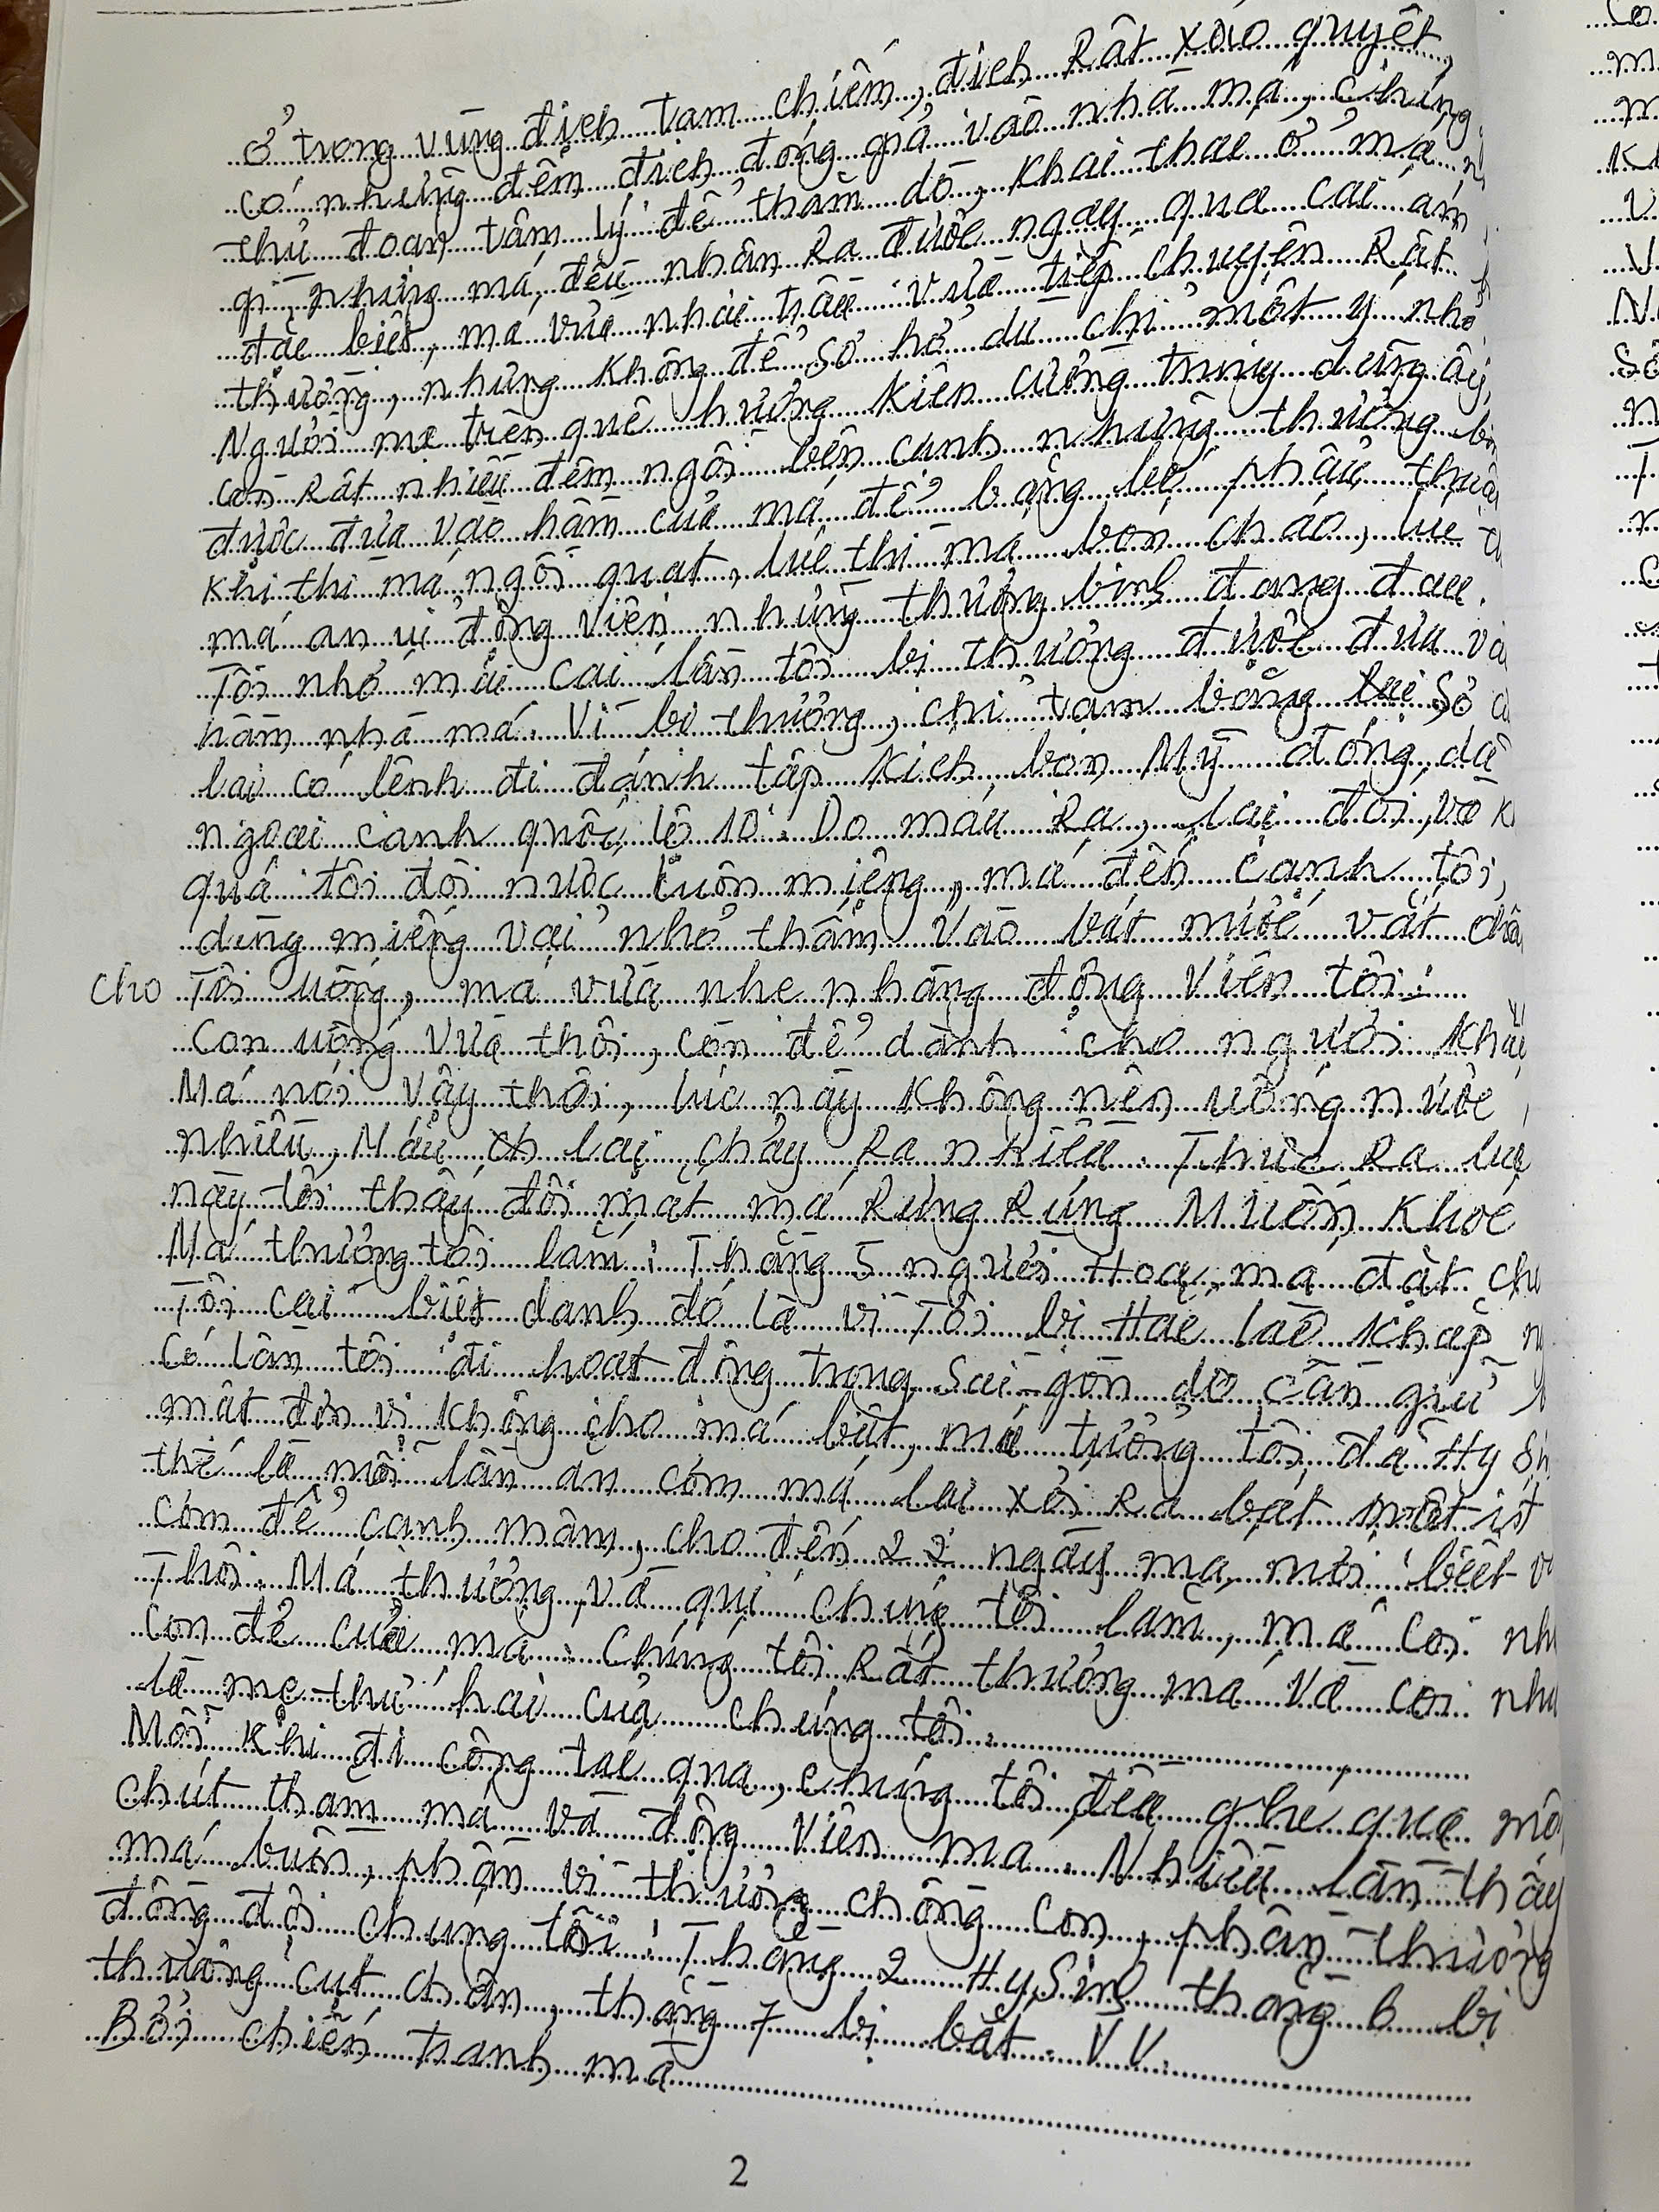 ở trong vùng địch tạm chiếm, địch Rất xảo quyệt,
có những đêm địch đóng giả vào nhà má, chúng
thủ đoạn tâm lý để thăm dò, khai thác ở má
gì, nhưng má đều nhận Ra được ngay qua cái ám
đặc biệt, má vừa nhai trầu vừa tiếp chuyện Rất
thường, nhưng không để sơ hở dù chỉ một ý nhỏ
Người mẹ trên quê hương kiên cường trung dũng ấy,
còn Rất nhiều đêm ngồi bên cạnh những thương
được đưa vào hầm của má để băng bó, phẫu thuậ
khi thì má ngồi quạt, lúc thì má bón cháo, lúc
má an ủi động viên những thương binh đang đau.
Tôi nhớ mãi cái lần tôi bị thương được đưa và
hầm nhà má. Vì bị thương, chỉ tạm băng tại sở
lại có lệnh đi đánh tập kích bọn Mỹ đóng dã
ngoại cạnh quốc lộ 10. Do máu Ra, lại đói, và
quá tôi đòi nước luôn miệng, má đến cạnh tôi,
dùng miếng vải nhỏ thấm vào bát nước vắt
cho Tôi uống, má vừa nhẹ nhàng động viên tôi:
Con uống vừa thôi, còn để dành cho người khá
Má nói vậy thôi, lúc này không nên uống nước
nhiều, Máu lại chảy Ra nhiều. Thực Ra lúc
này tôi thấy đôi mắt má Rưng Rưng Muốn khóc
Má thương tôi lắm: Thằng 5 người Hoa, má đặt ch
Tôi cái biệt danh đó là vì Tôi bị Hắc lào khắp
Có lần tôi đi hoạt động trong Sài-gòn do cần giữ
mật đơn vị không cho má biết, má tưởng tôi đã Hy
thế là mỗi lần ăn cơm má lại xới Ra bát một ít
cơm để cạnh mâm, cho đến 22 ngày má mới biết
Thôi. Má thương, và quí chúng tôi lắm, má coi nh
con đẻ của má. Chúng tôi Rất thương má và coi như
là mẹ thứ hai của chúng tôi.
Mỗi khi đi công tác qua, chúng tôi đều ghé qua mộ
chút thăm má và động viên má. Nhiều lần thấy
má buồn, phần vì thương chồng con, phần thương
đồng đội chúng tôi: Thằng 2 Hy Sinh thằng 6 bị
thương cụt chân, thằng 7 bị bắt. V V.
Bởi chiến tranh mà
2